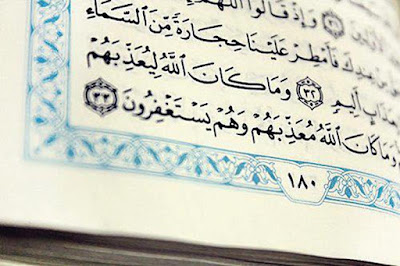 ٱلْأَوَّلِينَ ۝٣١ وَإِذْ قَالُوا۟ ٱللَّهُمَّ
مِنْ عِندِكَ فَأَمْطِرْ عَلَيْنَا حِجَارَةً مِّنَ ٱلسَّمَآءِ
بِعَذَابٍ أَلِيمٍ ۝٣٢ وَمَا كَانَ ٱللَّهُ لِيُعَذِّبَهُمْ
وَمَا كَانَ ٱللَّهُ مُعَذِّبَهُمْ وَهُمْ يَسْتَغْفِرُونَ ۝٣٣
١٨٠